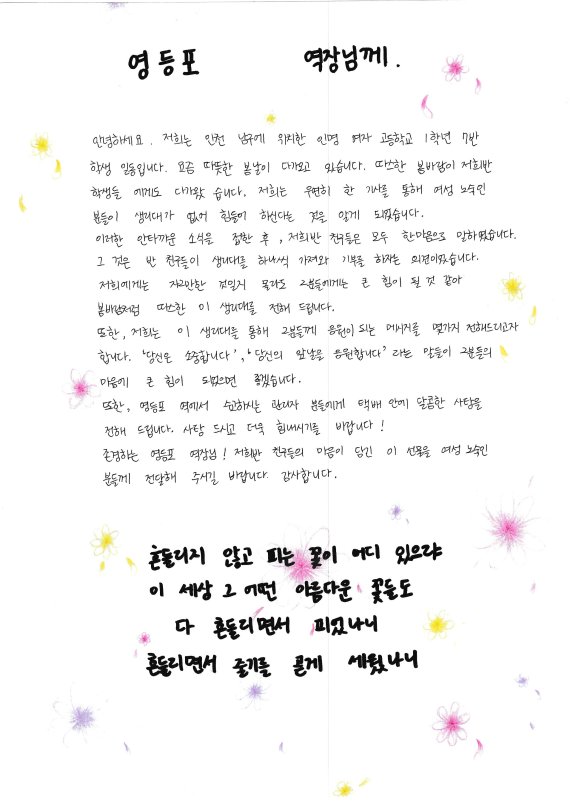 영등포 역장님께.
안녕하세요. 저희는 인천 남구에 위치한 인명 여자 고등학교 1학년 7반
학생 일동입니다. 요즘 따뜻한 봄날이 다가오고 있습니다. 따스한 봄바람이 저희반
학생들 에게도 다가왔 습니다. 저희는 우연히 한 기사를 통해 여성 노숙인
분들이 생리대가 없어 힘들어 하신다는 것을 알게 되었습니다.
이러한 안타까운 소식을 접한 후, 저희반 친구들은 모두 한마음으로 말하였습니다.
그 것은 반 친구들이 생리대를 하나씩 가져와 기부를 하자는 의견이었습니다.
저희에게는 자그만한 것일지 몰라도 그분들에게는 큰 힘이 될 것 같아
봄바람처럼 따스한 이 생리대를 전해 드립니다.
또한, 저희는 이 생리대를 통해 그분들께 응원이 되는 메시거를 몇가지 전해드리고자
합니다. '당신은 소중합니다', '당신의 앞날을 응원합니다' 라는 말들이 그분들의
마음에 큰 힘이 되었으면 좋겠습니다.
또한, 영등포 역에서 수고하시는 관리자 분들에게 택배 안에 달콤한 사탕을
전해 드립니다. 사탕 드시고 더욱 힘내시기를 바랍니다!
존경하는 영등포 역장님! 저희반 친구들의 마음이 담긴 이 선물을 여성 노숙인
분들께 전달해 주시길 바랍니다. 감사합니다.
흔들리지 않고 피는 꽃이 어디 있으랴
이 세상 그 어떤 아름다운 꽃들도
다 흔들리면서 피었나니
흔들리면서 줄기를 곧게 세웠나니